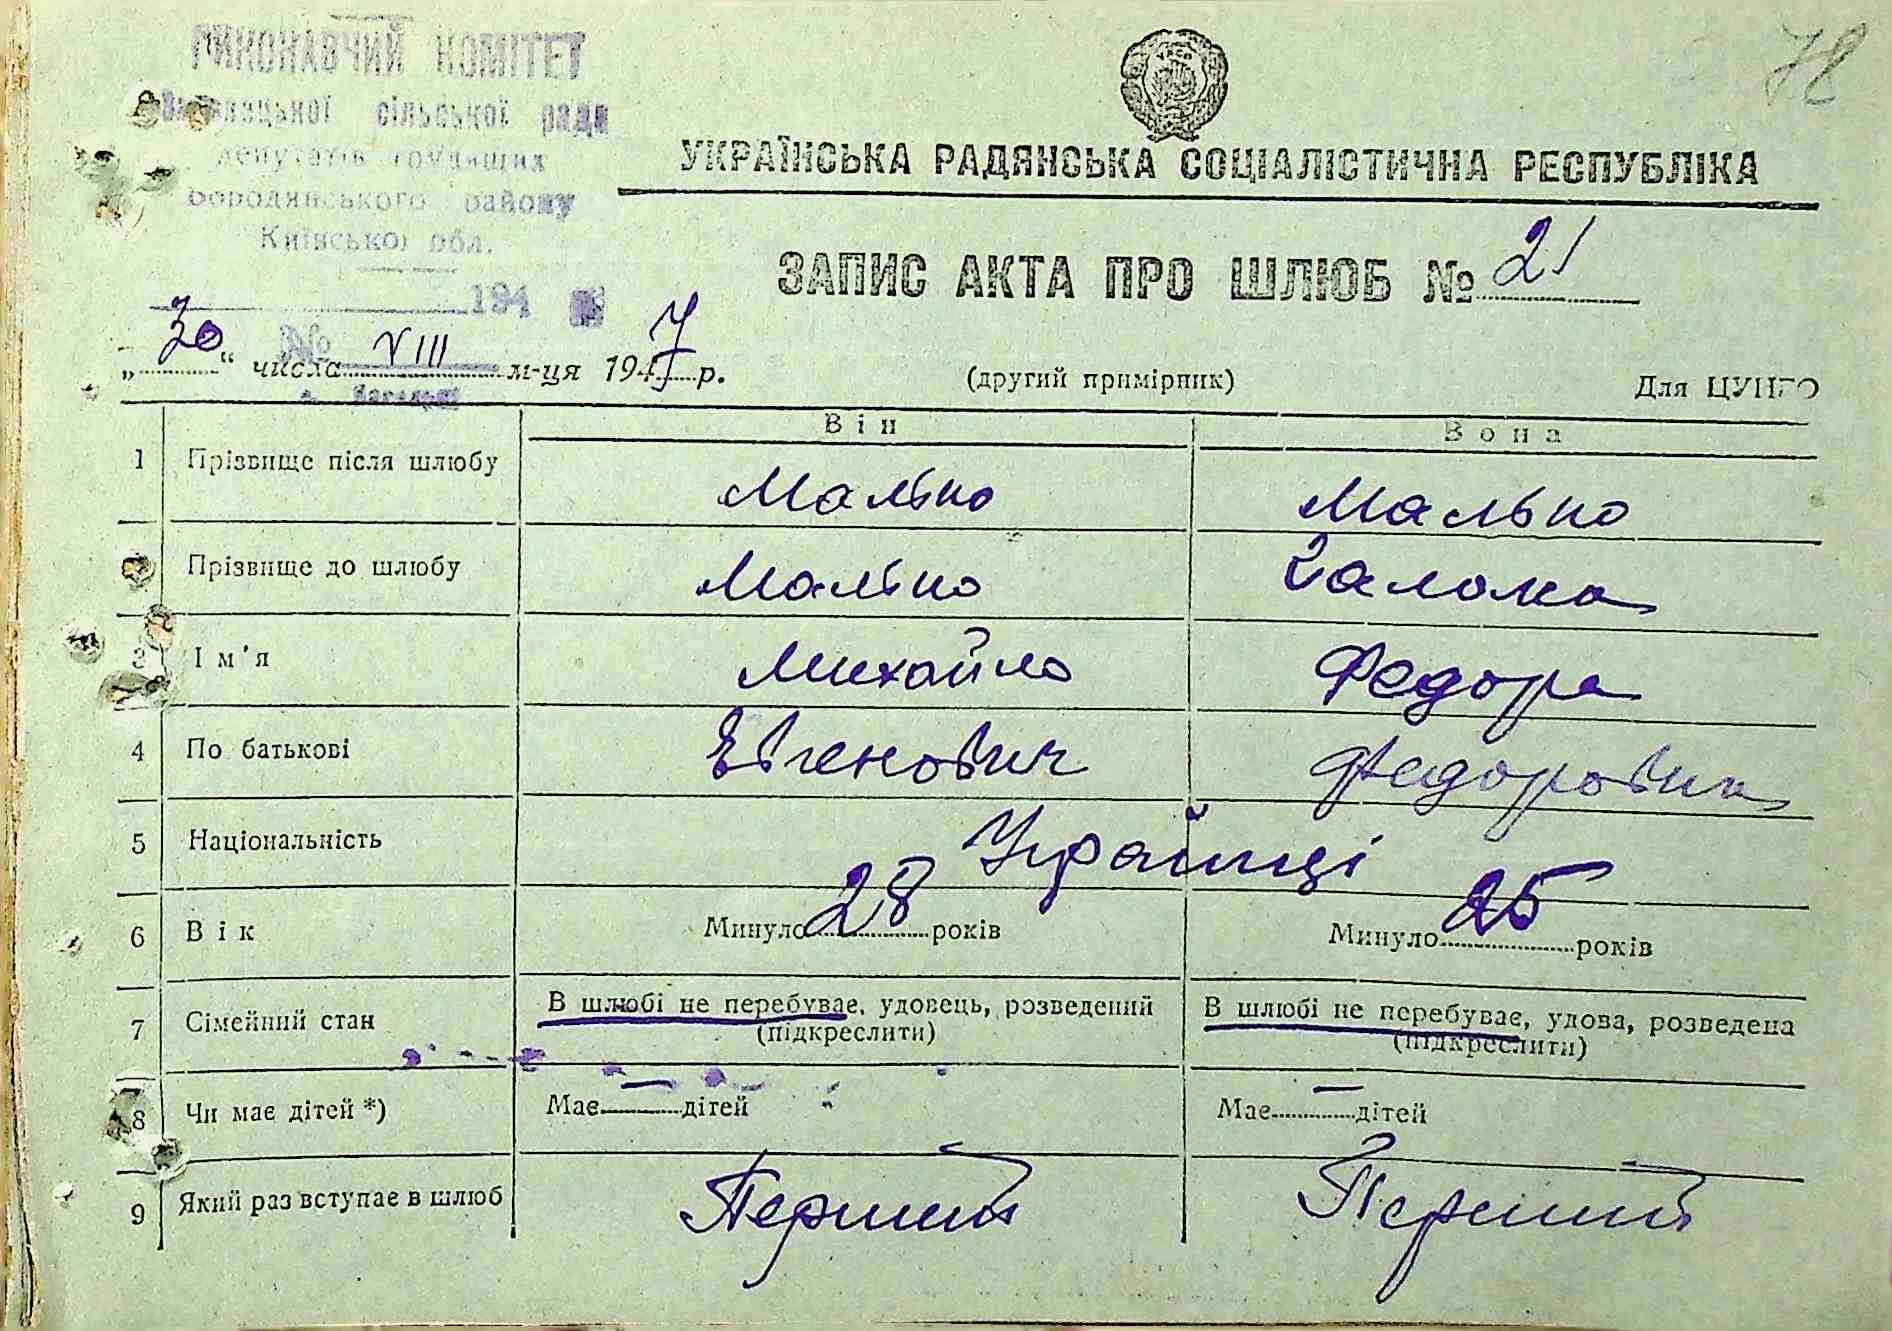 72
ВИКОНАВЧИЙ КОМІТЕТ
сільської ради
депутатів трудящих
Бородянського району
Київської обл.
194
№
УКРАЇНСЬКА РАДЯНСЬКА СОЦІАЛІСТИЧНА РЕСПУБЛІКА
ЗАПИС АКТА ПРО ШЛЮБ № 21
„30“ числа VIII м-ця 1947 р.
(другий примірник) Для ЦУНГО
Він Вона
1 Прізвище після шлюбу Малько Малько
2 Прізвище до шлюбу Малько Галока
3 Ім'я Михайло Федора
4 По батькові Евгенович Федоровна
5 Національність Українці
6 Вік Минуло 28 років Минуло 25 років
7 Сімейний стан В шлюбі не перебуває, удовець, розведений В шлюбі не перебуває, удова, розведена
(підкреслити) (підкреслити)
8 Чи має дітей *) Має — дітей Має — дітей
9 Який раз вступає в шлюб Перший Перший